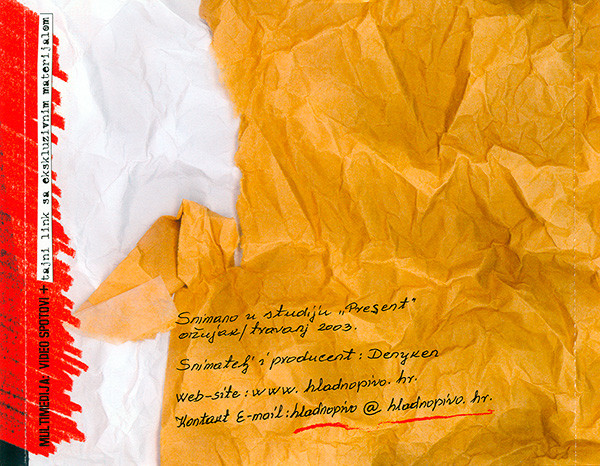 MULTIMEDIJA: VIDEO SPOTOVI + tajni link sa ekskluzivnim materijalom
Snimano u studiju „Present"
ožujak/travanj 2003.
Snimatelj i producent: Denyken
Web-site: www.hladnopivo.hr.
Kontakt E-mail: hladnopivo @ hladnopivo.hr.